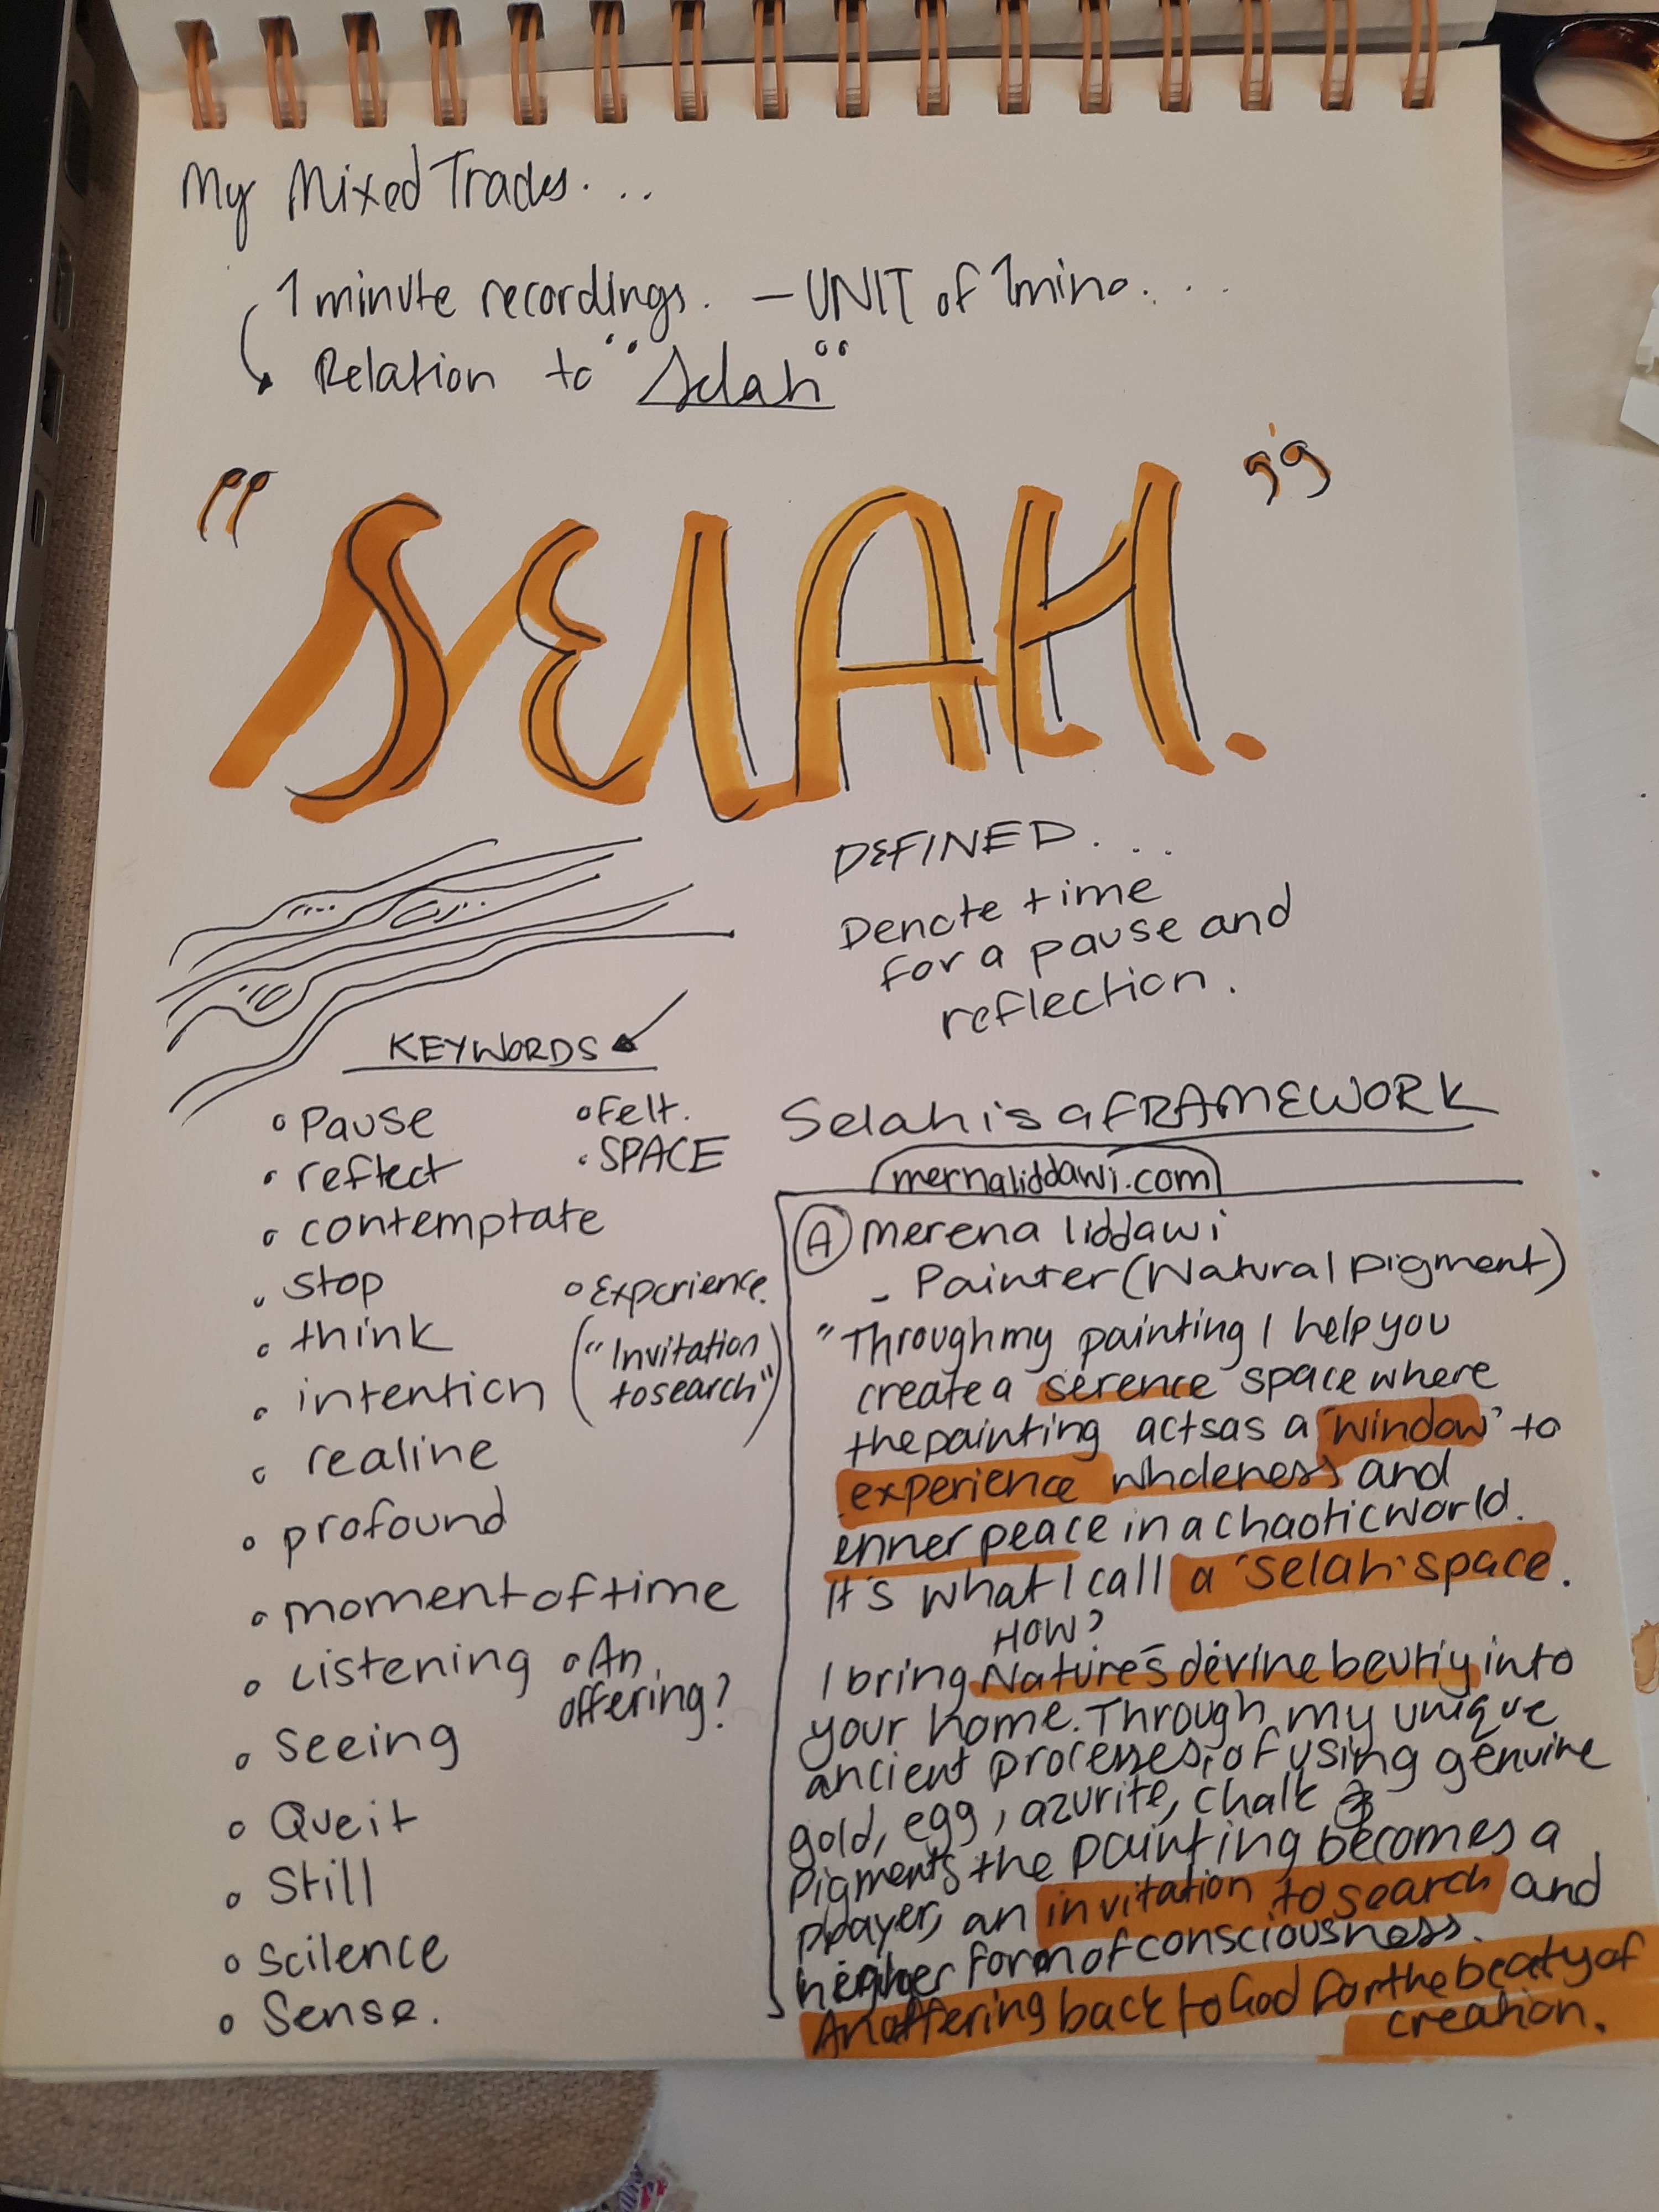 My Mixed Trades...
1 minute recordings. — UNIT of 1mino...
Relation to "Selah"
"SELAH."
DEFINED...
Denote time
for a pause and
reflection.
KEYWORDS
Pause
reflect
contemptate
stop
think
intention
realine
profound
moment of time
Listening
Seeing
Queit
Still
Scilence
Sense.
Felt.
SPACE
Experience.
("Invitation
to search")
An
offering?
Selah is a FRAMEWORK
mernaliddawi.com
A merena liddawi
- Painter (Natural pigment)
"Through my painting I help you
create a serence space where
the painting acts as a 'window' to
experience wholeness and
enner peace in a chaotic world.
It's what I call a 'selah' space.
HOW?
I bring Nature's devine beutiy into
your home. Through my unique
ancient processes, of using genuine
gold, egg, azurite, chalk &
pigments the painting becomes a
prayer, an invitation to search and
heigher form of consciousness.
An offering back to God for the beaty of
creation.